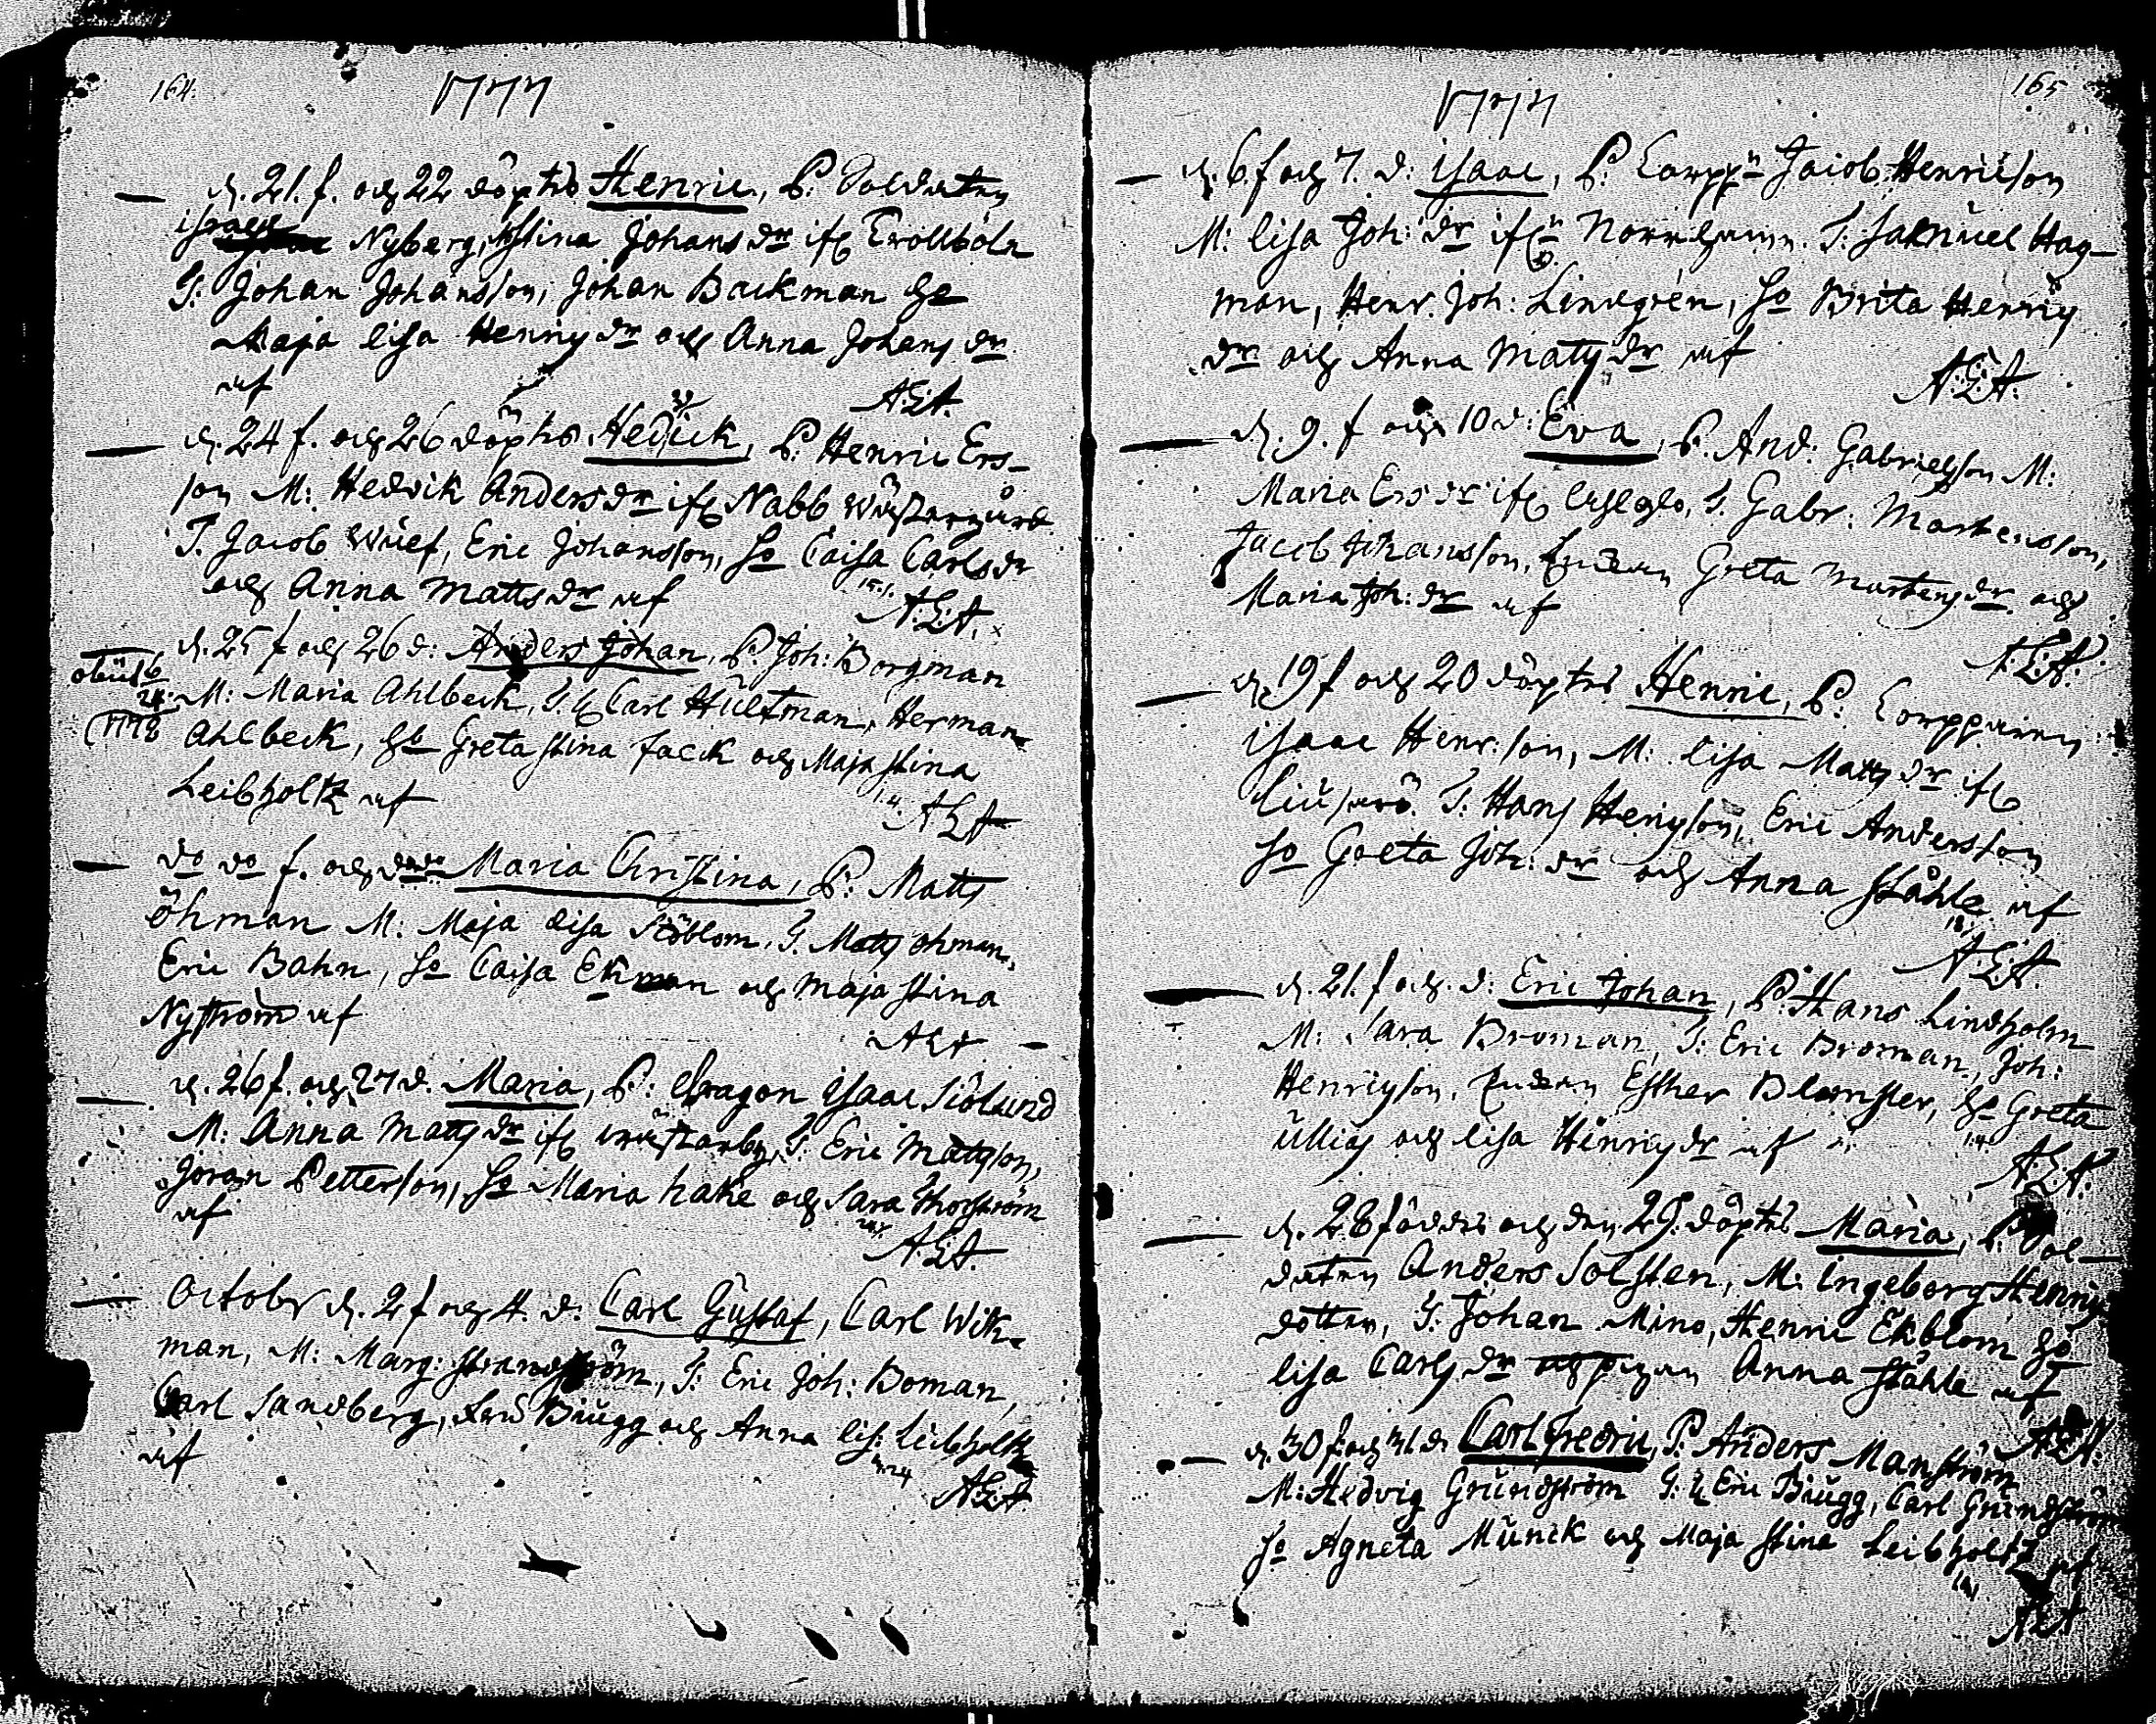 164.
1777
d. 21. f. och 22 döptes Henric, P. Soldaten
israel Nyberg, Stina Johans dr ifr Trollböle
T: Johan Johansson, Johan Backman hu
Maja lisa Henrics dr och Anna Johans dr
uf
A:E:A.
d. 24 f. och 26 döptes Hedvick, P: Henric Ers-
son M: Hedvik Anders dr ifr Nabb wästergård
T. Jacob Wuef, Eric Johansson, ho Caisa Carls dr
och Anna Matts dr uf
A:E:A.
d. 25 f och 26 d: Anders Johan, P. Joh: Borgman
obiit 6
24. M: Maria Ahlbeck, T. Carl Hultman, Herman
1778 Ahlbeck, ho Greta stina Falck och Maja stina
Leibholtz uf
AEA
do do f. och do do Maria Christina, P: Matts
öhman M: Maja Lisa Sföblom, T. Matts ohman,
Eric Bahn, ho Caisa Ekman och Maja stina
Nyström uf
AEA
d. 26 f. och 27 d. Maria, P: Dragon isaac Siölund
M: Anna Matts dr ifr wästerby, T: Eric Mattsson,
Joran Petterson, ho Maria hake och Sara Thorström
uf
A:E:A.
October d. 2 f och 4. d: Carl Gustaf, Carl Wik-
man, M: Marg: strandström, T: Eric Joh: Boman,
Carl Sandberg, Biugg och Anna lis: Leibholtz
uf
A:E:A
165
1777
d. 6. f och 7. d: isaac, P: Jacob Henricson
M: lisa Joh: dr ifr T: Samuel Hag-
man, Henr. Joh: Lindgren, ho Brita Henrics
dr och Anna Matts dr uf
A:E:A.
d. 9. f och 10 d: Eva, P. And: Gabrielsson M:
Maria Ers dr ifr T. Gabr: Mårtensson,
Jacob Johansson, Greta Mårtens dr och
Maria Joh: dr uf
A:E:A.
d. 19 f och 20 döptes Henric, P:
isaac Henr:son, M: lisa Matts dr ifr
T: Hans Henrsson, Eric Andersson
ho Greta Joh: dr och Anna ståhle uf
A:E:A.
d. 21. f och. d: Eric Johan, P. Hans Lindholm
M: Sara Broman, T: Eric Broman, Joh:
Henricsson, Esther Blomster, ho Greta
ullics och lisa Henrics dr uf
A:E:A.
d. 28 föddes och den 29. döptes Maria, P: Sol-
daten Anders Solsten, M: Ingeborg Henrics
dotter, T: Johan Mino, Henric Ekblom ho
lisa Carls dr och Anna ståhle uf
A:E:A.
d. 30 f. och 31 d. Carl Fredric, P: Anders Manström
M: Hedvig Grundström T: Eric Biugg, Carl Grundström
ho Agneta Munck och Maja stina Leibholtz uf
AEA